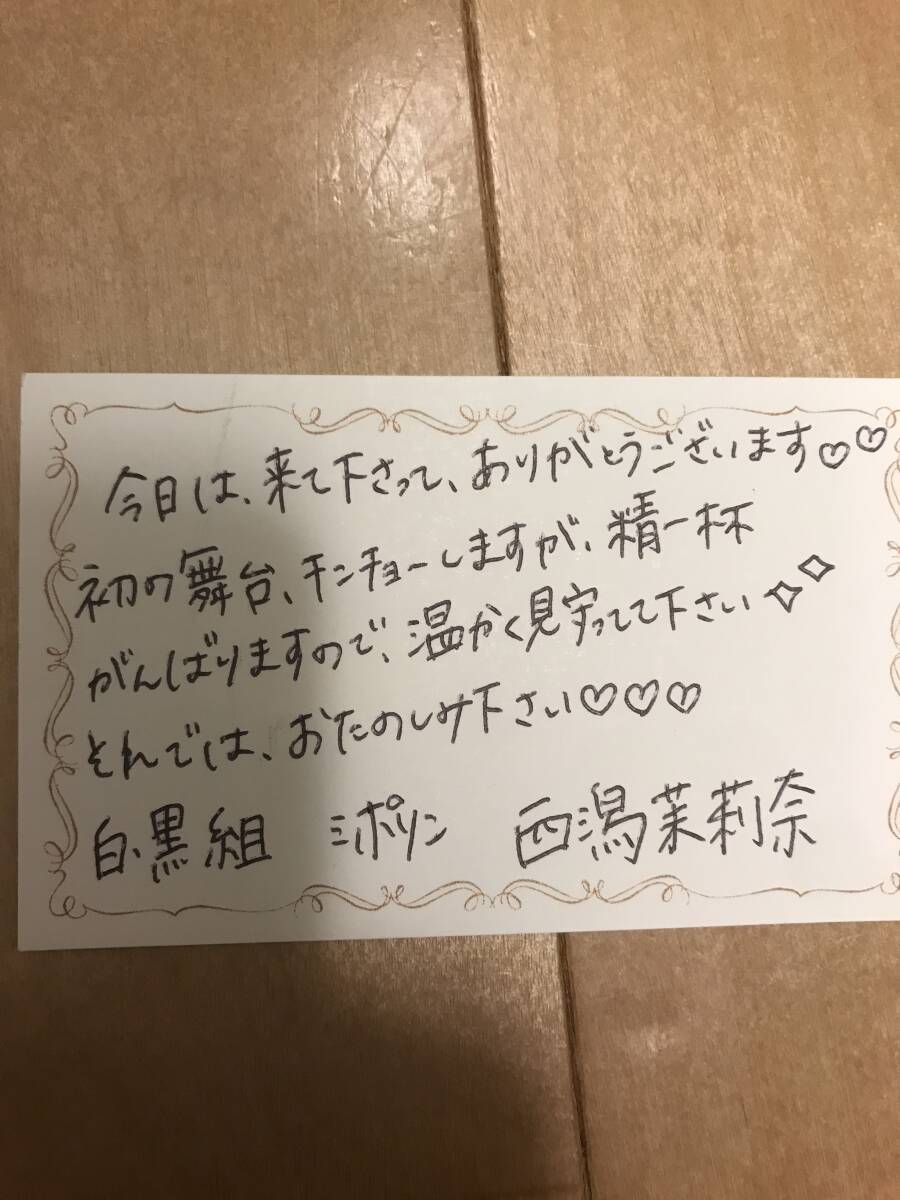 今日は、来て下さって、ありがとうございます♡♡
初の舞台、キンチョーしますが、精一杯
がんばりますので、温かく見守ってて下さい✧✧
それでは、おたのしみ下さい♡♡♡
白・黒組 ミポリン 西潟茉莉奈